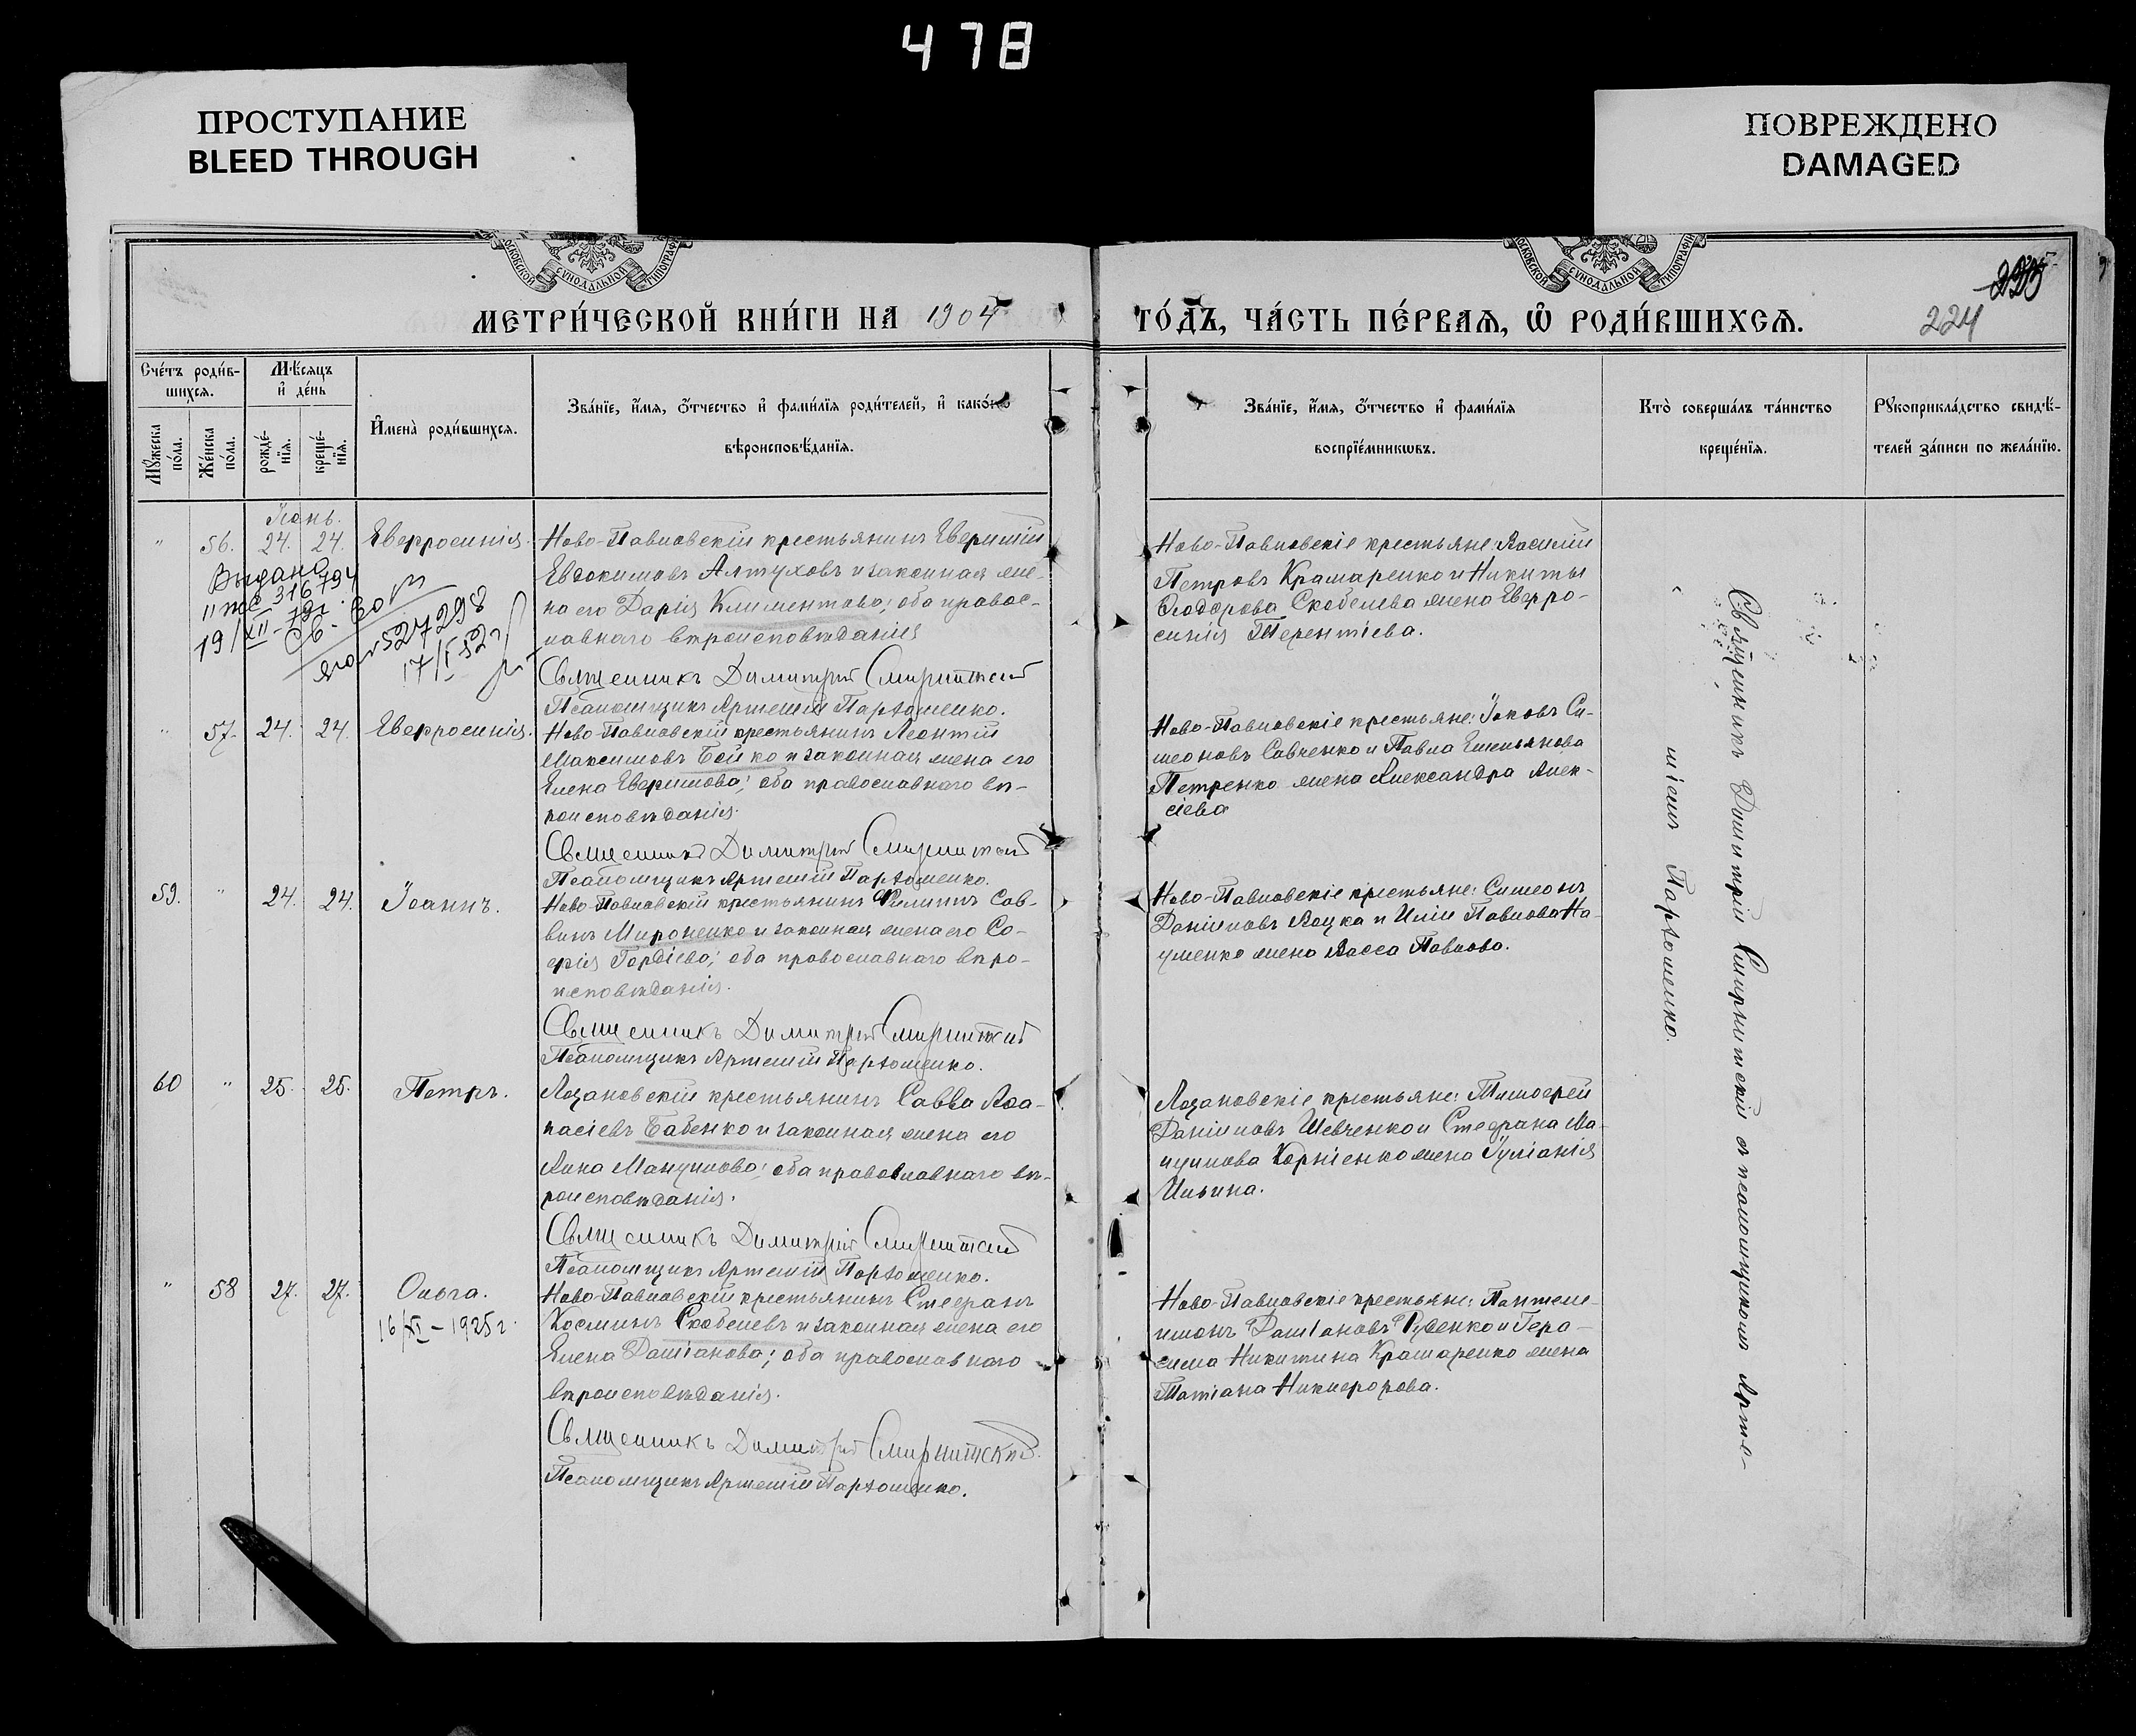 478
ПРОСТУПАНИЕ
BLEED THROUGH
ПОВРЕЖДЕНО
DAMAGED
СѴНОДАЛЬНОЙ
СѴНОДАЛЬНОЙ
МЕТРИ́ЧЕСКОЙ КНИ́ГИ НА 1904
ГО́ДЪ, ЧА́СТЬ ПЕ́РВАѦ, Ѡ РОДИ́ВШИХСѦ.
224
Сче́тъ роди́в-
шихся.
Мѣ́сяцъ
и҆ де́нь
Мꙋ́жеска
по́ла.
Же́нска
по́ла.
рожде́-
нїя.
креще́-
нїя.
И҆мена̀ роди́вшихся.
Зва́нїе, и҆́мя, ѻ҆́тчество и҆ фами́лїя роди́телей, и҆ како́гѡ
вѣроисповѣ́данїя.
Зва́нїе, и҆́мя, ѻ҆́тчество и҆ фами́лїя
воспрїе́мникѡвъ.
Кто̀ соверша́лъ та́инство
креще́нїя.
Рꙋкоприкла́дство свидѣ́-
телей за́писи по жела́нїю.
Іюнь.
" 56. 24. 24. Евфросинія.
Ново-Павловскій крестьянинъ Евфимій
Евдокимовъ Алтуховъ и законная же-
на его Дарія Климентова; оба правос-
лавнаго вѣроисповѣданія
Священникъ Димитрій Смирнитскій
Псаломщикъ Артемій Пархоменко.
Ново-Павловскіе крестьяне: Василій
Петровъ Крамаренко и Никиты
Ѳеодорова Скобелева жена Евфро-
синія Терентіева.
Выдано
316794
19/XII-79г.
527298
17/I 82г
" 57. 24. 24. Евфросинія.
Ново-Павловскій крестьянинъ Леонтій
Максимовъ Бойко и законная жена его
Елена Евфимова; оба православнаго вѣ-
роисповѣданія.
Священникъ Димитрій Смирнитскій
Псаломщикъ Артемій Пархоменко.
Ново-Павловскіе крестьяне: Іаковъ Си-
меоновъ Савченко и Павла Емельянова
Петренко жена Александра Алек-
сіева
59. " 24. 24. Іоаннъ.
Ново-Павловскій крестьянинъ Филиппъ Сав-
винъ Мироненко и законная жена его Со-
фія Гордіева; оба православнаго вѣро-
исповѣданія.
Священникъ Димитрій Смирнитскій
Псаломщикъ Артемій Пархоменко.
Ново-Павловскіе крестьяне: Симеонъ
Даніиловъ Яцка и Иліи Павлова На-
уменко жена Васса Павлова.
60 " 25. 25. Петръ.
Лозановскій крестьянинъ Савва Аѳа-
насіевъ Бабенко и законная жена его
Анна Мануилова; оба православнаго вѣ-
роисповѣданія.
Священникъ Димитрій Смирнитскій
Псаломщикъ Артемій Пархоменко.
Лозановскіе крестьяне: Тимофей
Даніиловъ Шевченко и Стефана Ма-
нуилова Корніенко жена Іуліанія
Ильина.
" 58 27. 27. Ольга.
16/XI-1925г.
Ново-Павловскій крестьянинъ Стефанъ
Косминъ Скобелевъ и законная жена его
Елена Даміанова; оба православнаго
вѣроисповѣданія.
Священникъ Димитрій Смирнитскій.
Псаломщикъ Артемій Пархоменко.
Ново-Павловскіе крестьяне: Пантеле-
имонъ Даміановъ Руденко и Гера-
сима Никитина Крамаренко жена
Татіана Никифорова.
Священникъ Димитрій Смирнитскій съ псаломщикомъ Арте-
міемъ Пархоменко.